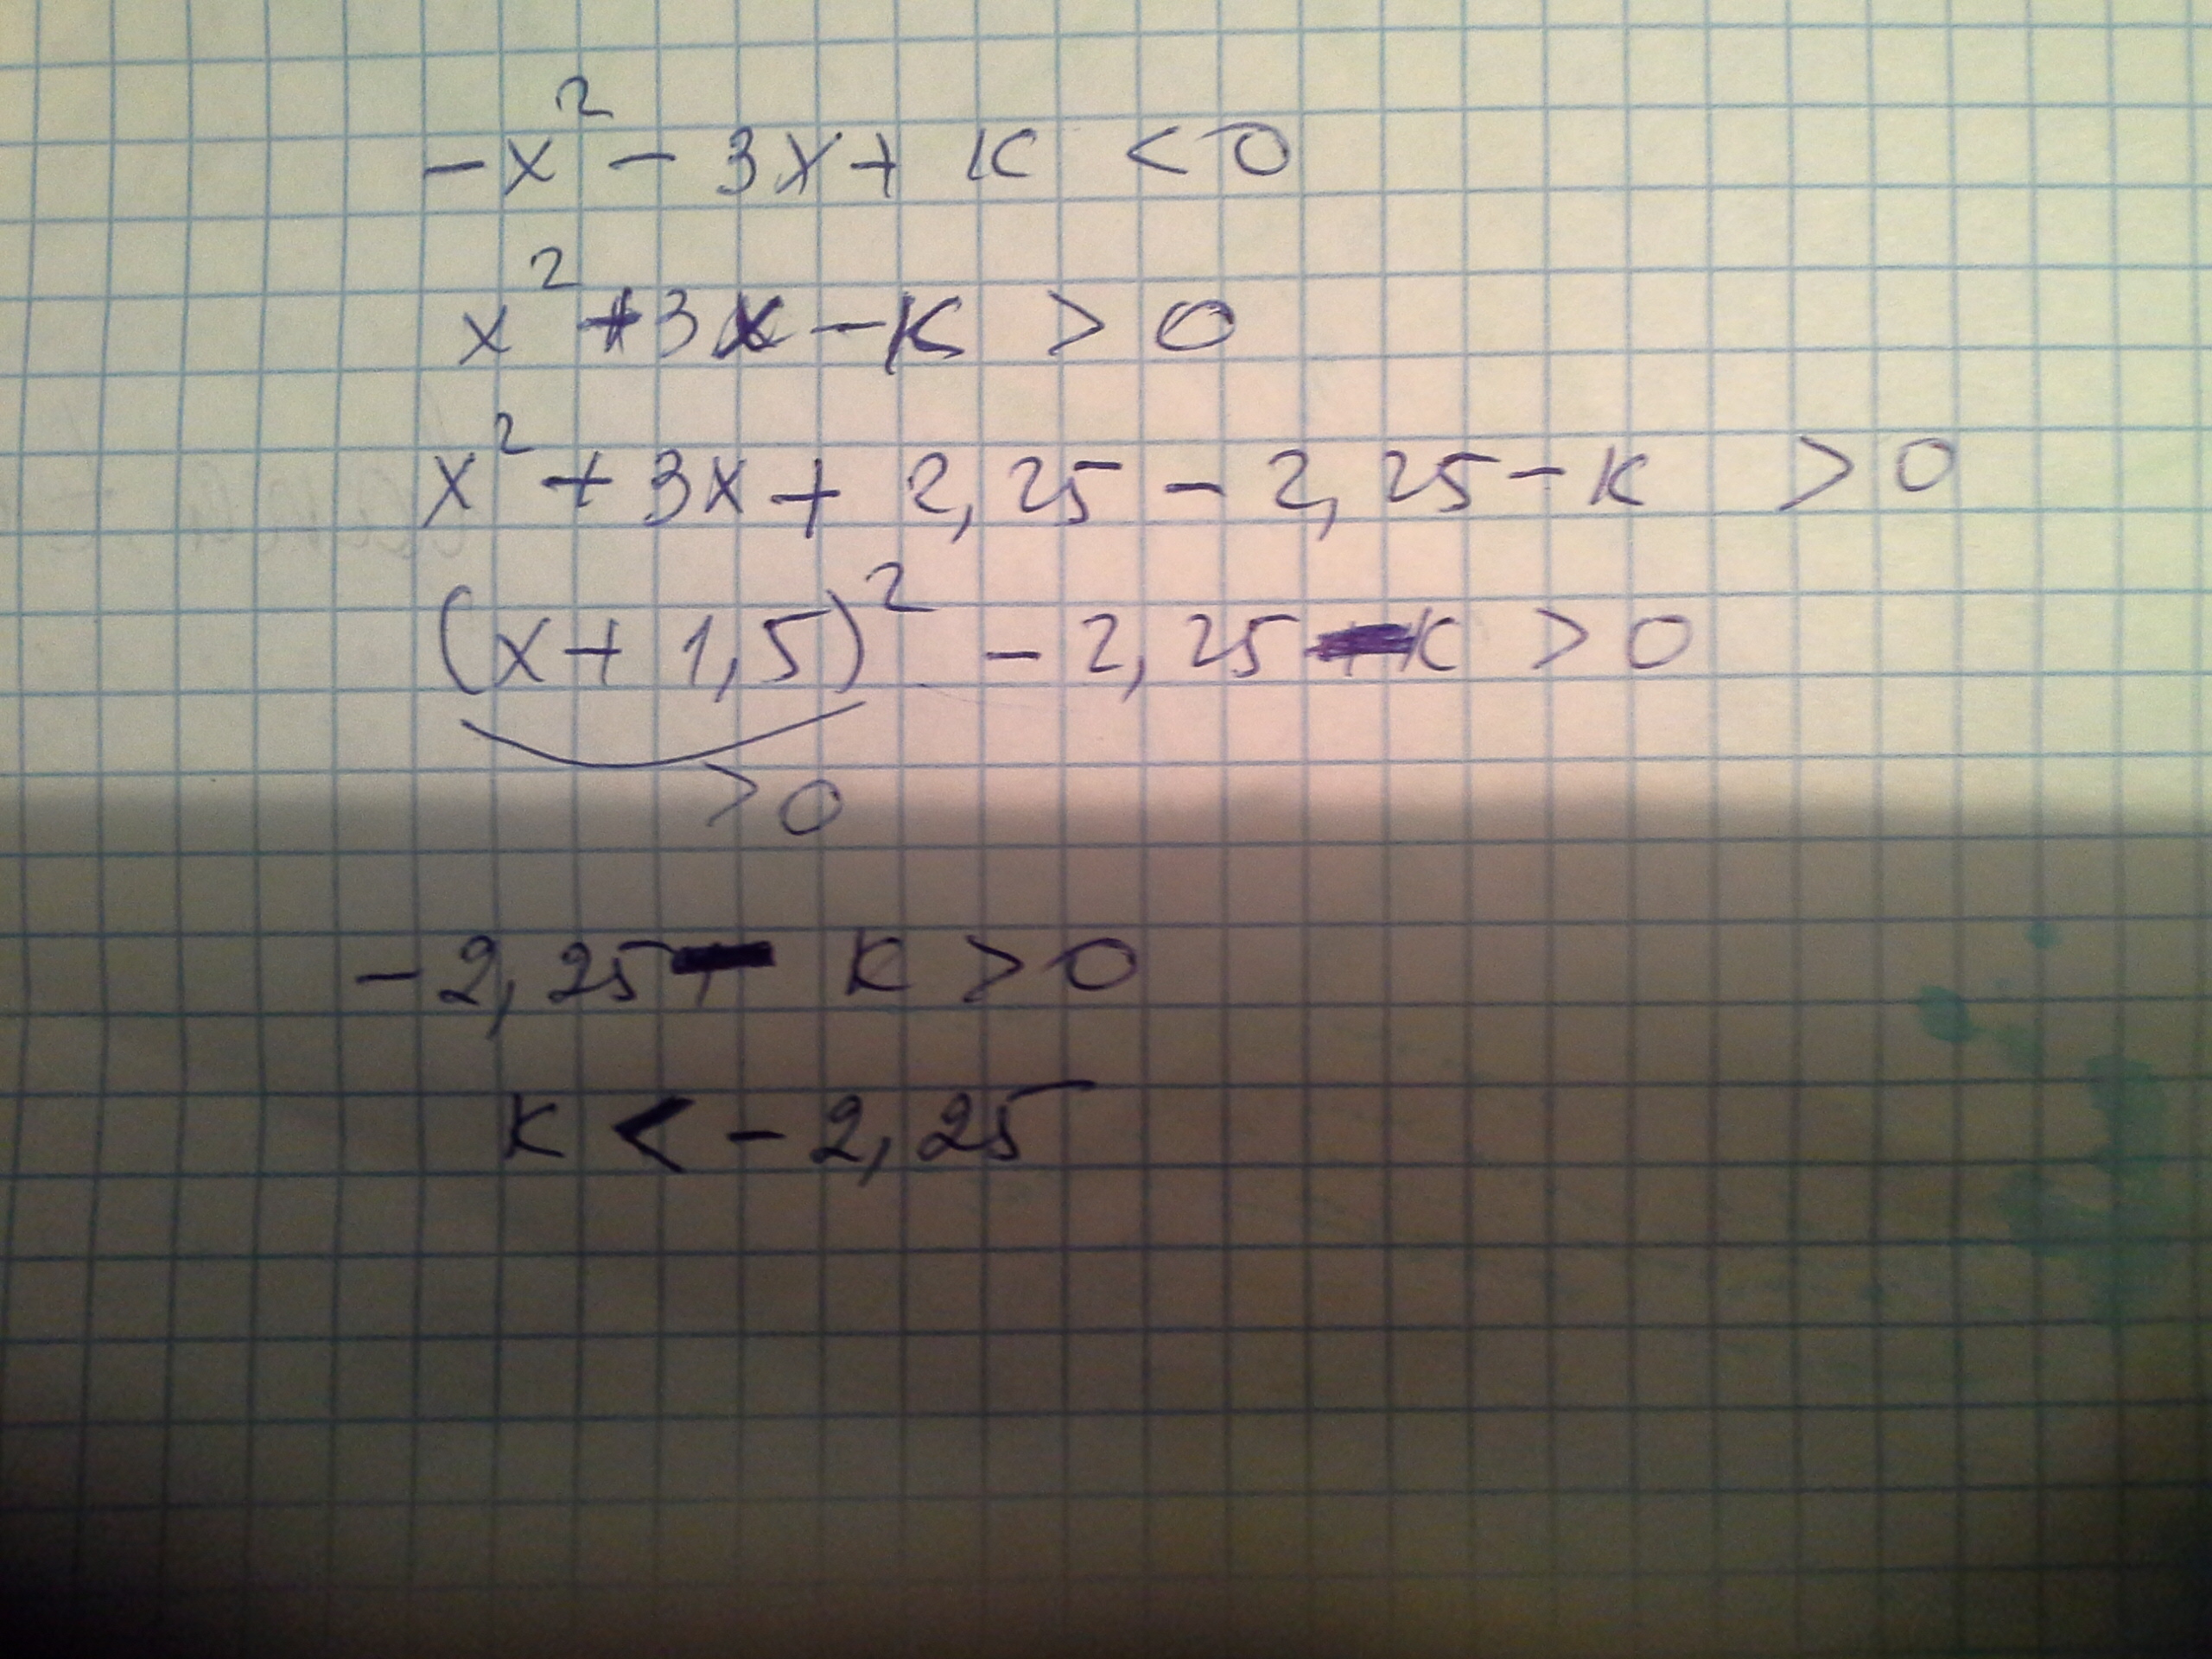 -x² - 3x + k < 0
x² + 3x - k > 0
x² + 3x + 2,25 - 2,25 - k > 0
(x + 1,5)² - 2,25 - k > 0
> 0
-2,25 - k > 0
k < -2,25